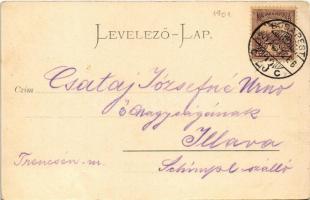 1901
LEVELEZŐ-LAP.
BUDAPEST
Czim
Csátaj Józsefné Urnő
ő Nagyságának
Illava
Trencsén m.
Schimpl szálló